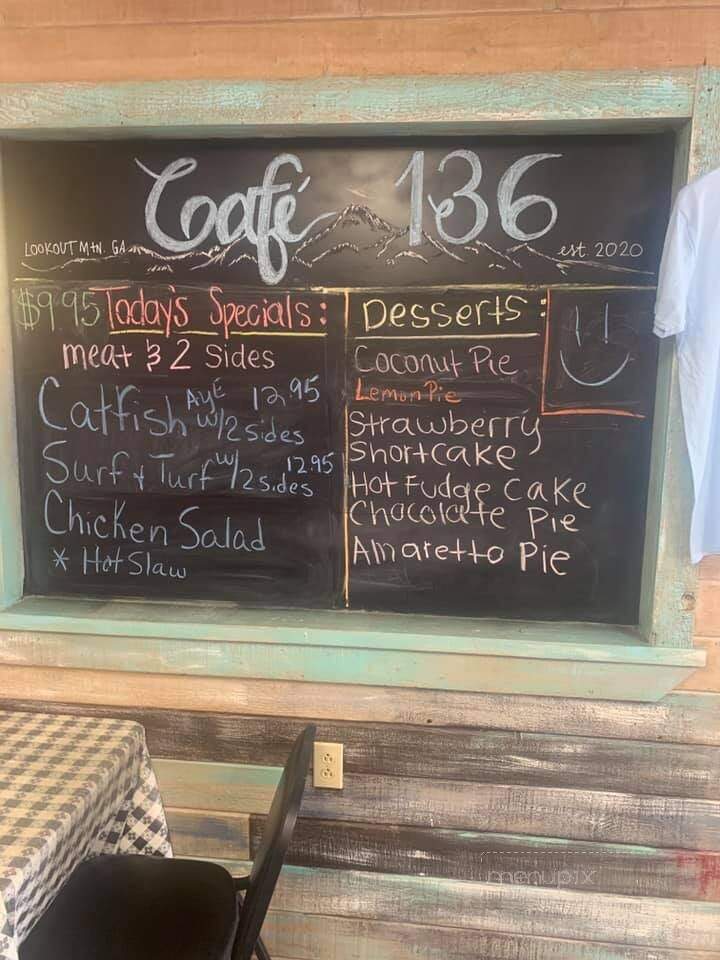 Café 136
LOOKOUT MTN. GA
est. 2020
$9.95 Today's Specials:
meat & 2 Sides
Catfish AYE 12.95
w/2 sides
Surf & Turf w/2 sides 12.95
Chicken Salad
* Hot Slaw
Desserts:
Coconut Pie
Lemon Pie
Strawberry
Shortcake
Hot Fudge Cake
Chocolate Pie
Amaretto Pie
menupix